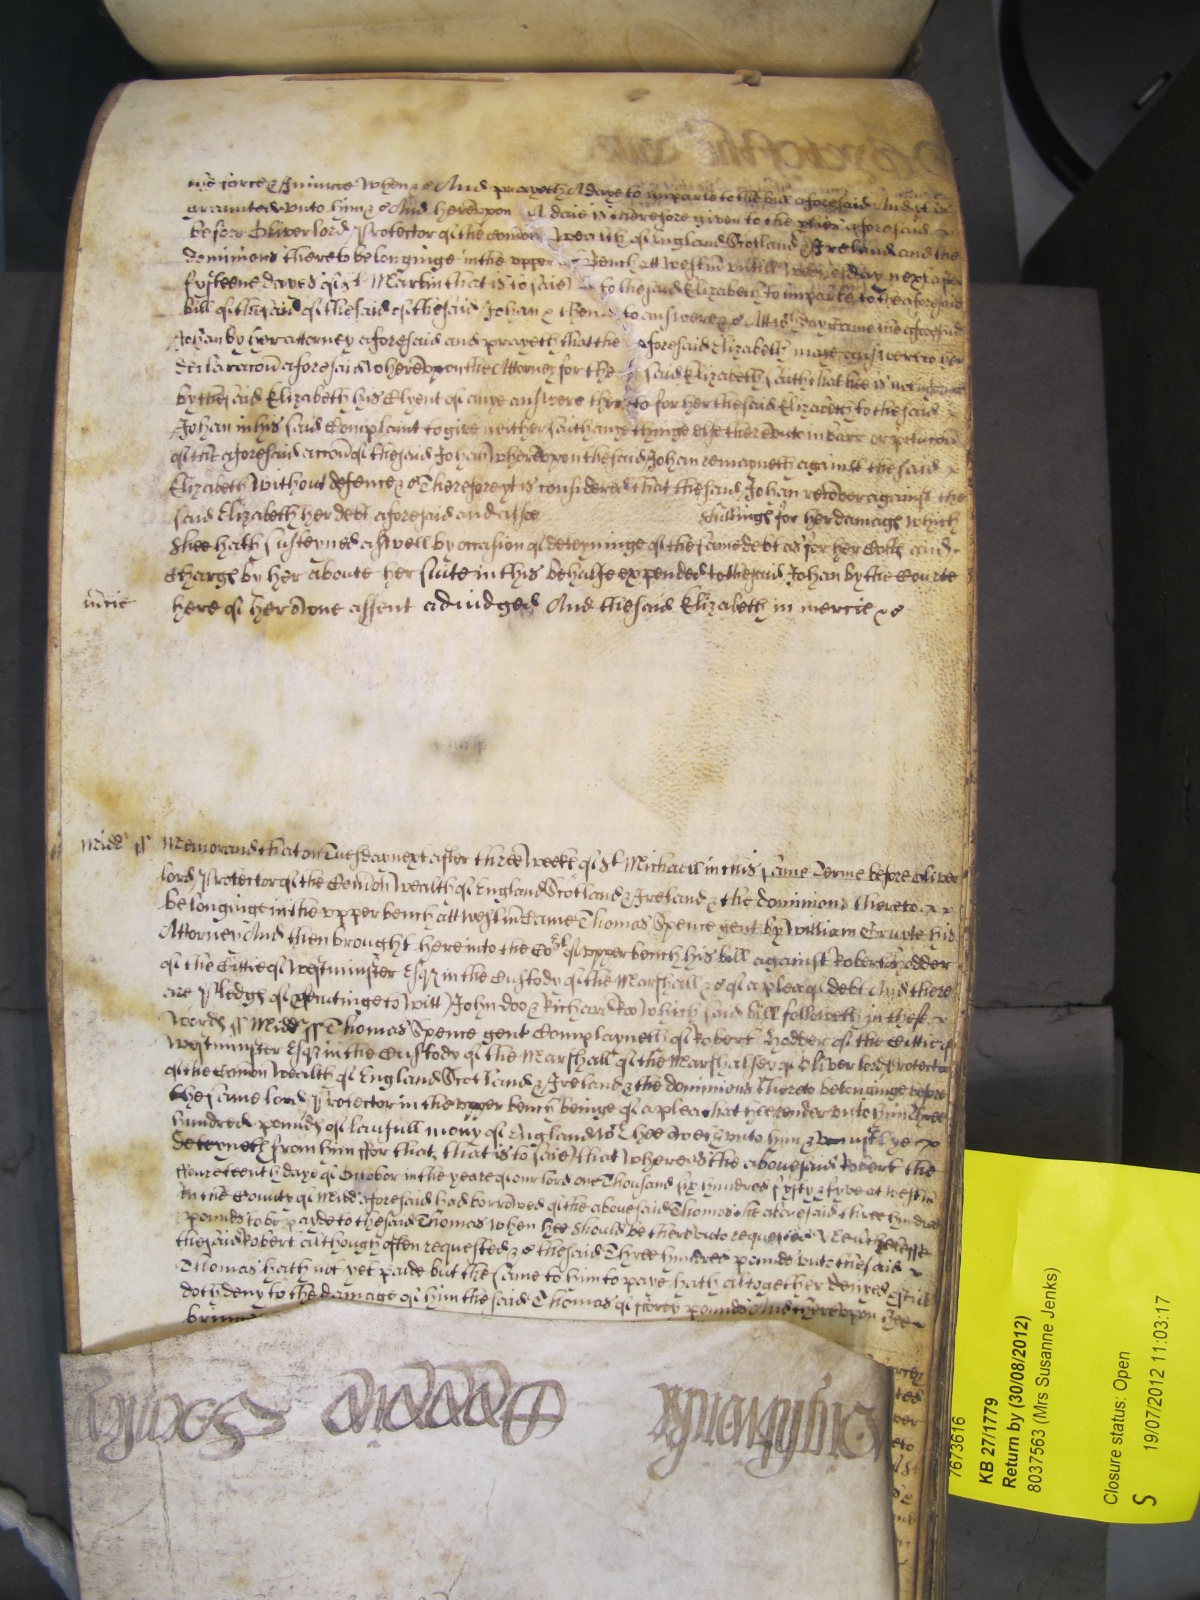 the force & Iniurie when &c And prayeth A daye to imparle to the bill aforesaid And yt is
graunted unto him &c And hereupon A daie is therefore given to the pties aforesaid
before Oliver lord Protector of the Comon Wealth of England Scotland & Ireland and the
dominions thereto belonginge in the upper Bench att Westm untill Wednesday next after
fyfteene dayes of St Martin that is to saie to the said Elizabeth to imparle to the aforesaid
bill of the said Johan & then to answere &c Att wch day came the aforesaid
Johan by her attorney aforesaid and prayeth that the aforesaid Elizabeth maie answere to her
declaracon aforesaid whereupon the Attorney for the said Elizabeth saith that he is not informed
by the said Elizabeth his Clyent of anye answere thereto for her the said Elizabeth to the said
Johan in his said Complaint to give neither saith anye thinge else thereunto in barr or
of the aforesaid accon of the said Johan whereupon the said Johan remayneth against the said
Elizabeth without defence &c Therefore yt is considered that the said Johan recover against the
said Elizabeth her debt aforesaid and alsoe shillings for her damage which
Shee hath susteyned aswell by occasion of deteyninge of the same debt as for her Costs and
Charge by her aboute her suite in this behalfe expended to the said Johan by the Courte
mcie here of her owne assent adiudged And the said Elizabeth in mercie &c
Midd ss Memorand that on Tuesday next after three weeks of St Michaell in this same Terme before Oliver
lord Protector of the Comon Wealth of England Scotland & Ireland & the dominions thereto
belonginge in the upper bench att Westm Came Thomas Spence gent by William his
Attorney And then brought here into the Cort of upper bench his bill against Robert Yodder
of the Cittie of Westminster Esqr in the Custody of the Marshall &c of a plea of debt And there
are Pledgs of psecutinge to witt John doo & Richard Roo Which said bill followeth in these
words ss Midd ss Thomas Spence gent Complayneth of Robert Yodder of the Cittie of
Westminster Esqr in the Custody of the Marshall of the Marshalsey of Oliver lord Protector
of the Comon Wealth of England Scotland & Ireland & the dominions thereto belonginge before
the same lord Protector in the upper bench beinge of a plea that he render unto him three
hundred pounds of lawfull mony of England wch hee oweth unto him & uniustlye
deteyneth from him ffor that, that is to saie that whereas the abovesaid Robert the
ffourteenth daye of October in the yeare of our lord one Thousand six hundred fyfty & fyve at Westm
in the County of Midd aforesaid had borrowed of the abovesaid Thomas the aforesaid three hundred
pounds to be payde to the said Thomas when hee should be thereunto requested Neverthelesse
the said Robert although often requested &c the said Three hundred pounds unto the said
Thomas hath not yet paide but the same to him to paye hath altogether denyed & still
doth deny to the damage of him the said Thomas of forty pounds And thereupon hee
bringe
7673616
KB 27/1779
Return by (30/08/2012)
8037563 (Mrs Susanne Jenks)
Closure status: Open
19/07/2012 11:03:17
S